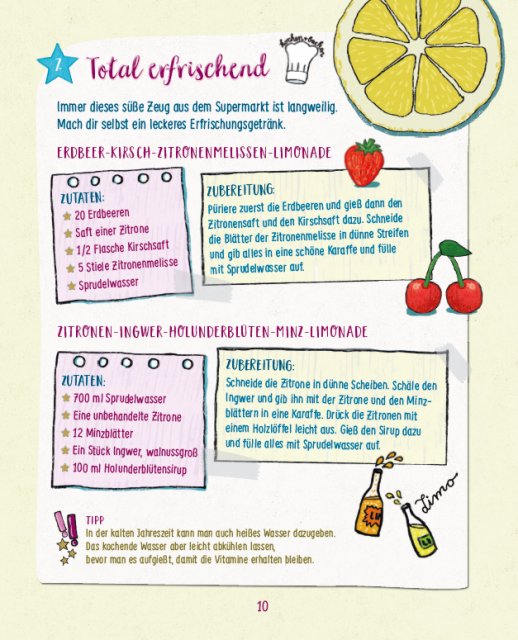 Z
Total erfrischend
kochen + backen
Immer dieses süße Zeug aus dem Supermarkt ist langweilig.
Mach dir selbst ein leckeres Erfrischungsgetränk.
ERDBEER-KIRSCH-ZITRONENMELISSEN-LIMONADE
ZUTATEN:
20 Erdbeeren
Saft einer Zitrone
1/2 Flasche Kirschsaft
5 Stiele Zitronenmelisse
Sprudelwasser
ZUBEREITUNG:
Püriere zuerst die Erdbeeren und gieß dann den
Zitronensaft und den Kirschsaft dazu. Schneide
die Blätter der Zitronenmelisse in dünne Streifen
und gib alles in eine schöne Karaffe und fülle
mit Sprudelwasser auf.
ZITRONEN-INGWER-HOLUNDERBLÜTEN-MINZ-LIMONADE
ZUTATEN:
700 ml Sprudelwasser
Eine unbehandelte Zitrone
12 Minzblätter
Ein Stück Ingwer, walnussgroß
100 ml Holunderblütensirup
ZUBEREITUNG:
Schneide die Zitrone in dünne Scheiben. Schäle den
Ingwer und gib ihn mit der Zitrone und den Minz-
blättern in eine Karaffe. Drück die Zitronen mit
einem Holzlöffel leicht aus. Gieß den Sirup dazu
und fülle alles mit Sprudelwasser auf.
Limo
TIPP
In der kalten Jahreszeit kann man auch heißes Wasser dazugeben.
Das kochende Wasser aber leicht abkühlen lassen,
bevor man es aufgießt, damit die Vitamine erhalten bleiben.
10